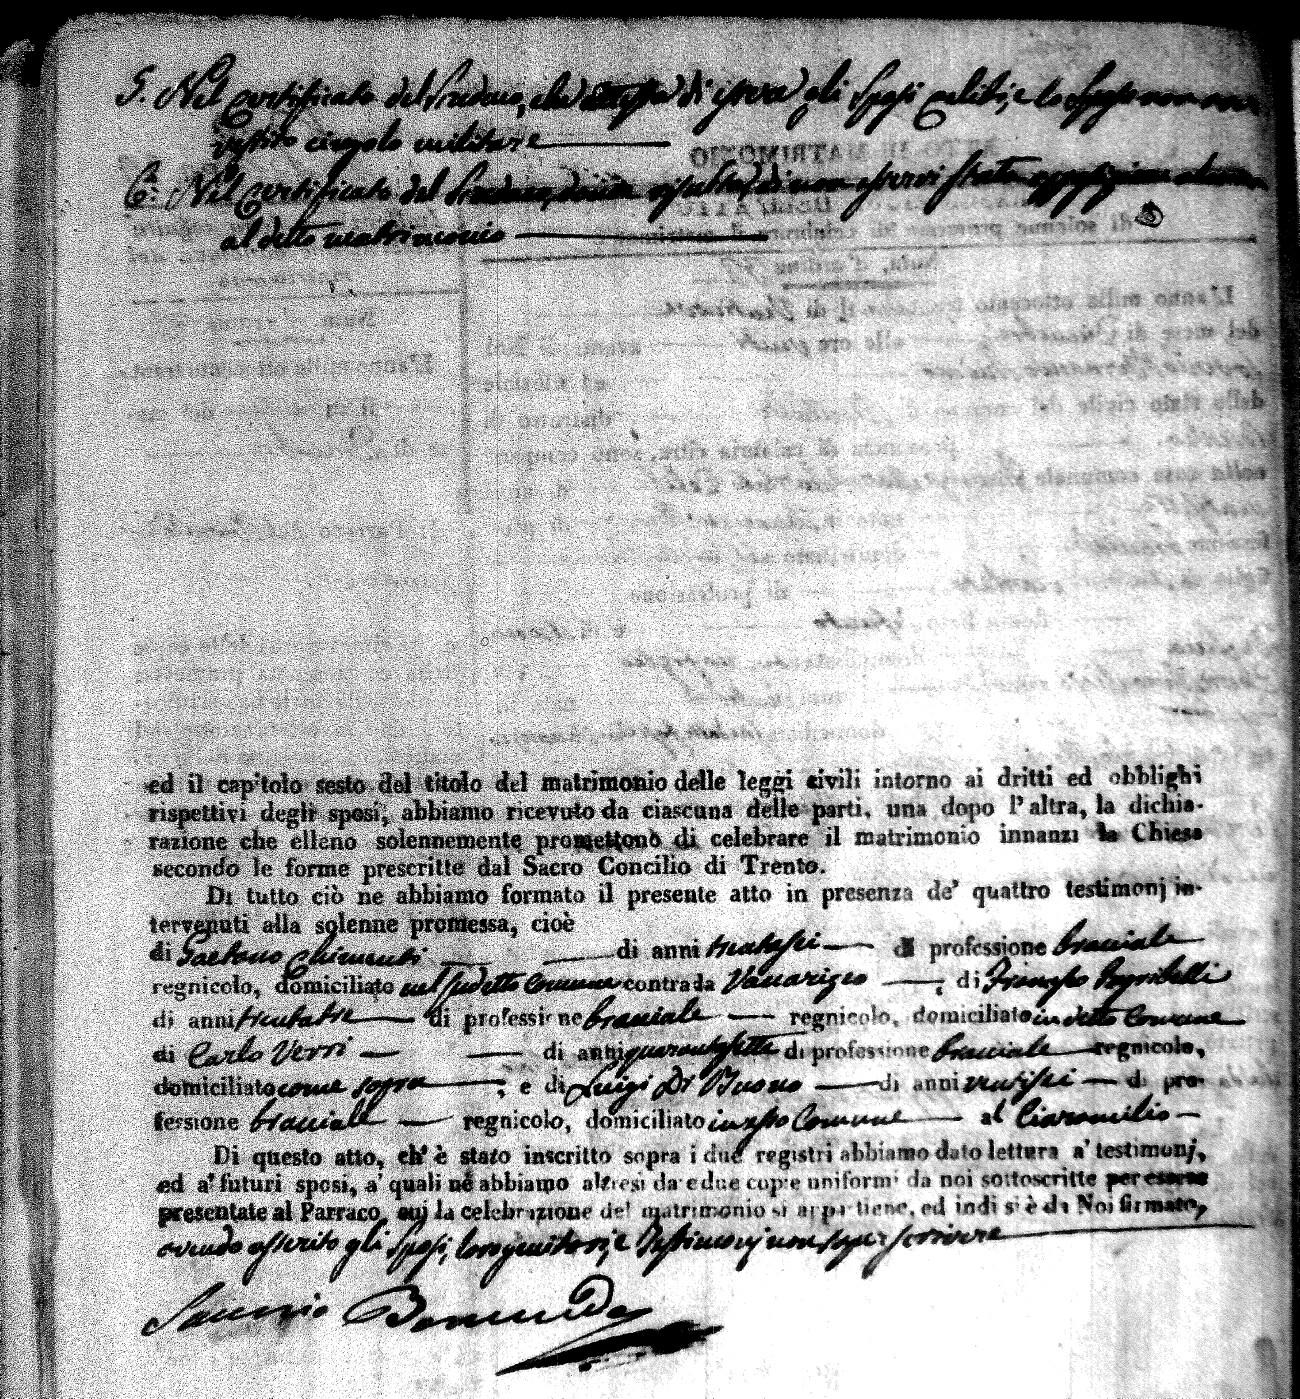 5. Nel certificato del Sindaco, che attesta di essere gli Sposi celibi, e lo Sposo non aver
vestito cingolo militare
6.a Nel certificato del Sindaco, risulta di non esservi stata opposizione alcuna
al detto matrimonio
ed il capitolo sesto del titolo del matrimonio delle leggi civili intorno ai dritti ed obblighi
rispettivi degli sposi, abbiamo ricevuto da ciascuna delle parti, una dopo l'altra, la dichia-
razione che elleno solennemente promettono di celebrare il matrimonio innanzi la Chiesa
secondo le forme prescritte dal Sacro Concilio di Trento.
Di tutto ciò ne abbiamo formato il presente atto in presenza de' quattro testimonj in-
tervenuti alla solenne promessa, cioè
di Gaetano Chimenti di anni trentasei di professione bracciale
regnicolo, domiciliato nel sudetto Comune contrada di
di anni trentatre di professione bracciale regnicolo, domiciliato in detto Comune
di Carlo Verri di anni quarantasette di professione bracciale regnicolo,
domiciliato come sopra ; e di Luigi Di Buono di anni ventisei di pro-
fessione bracciale regnicolo, domiciliato in esso Comune al Ciaramilio
Di questo atto, ch' è stato inscritto sopra i due registri abbiamo dato lettura a' testimonj,
ed a' futuri sposi, a' quali ne abbiamo altresì date due copie uniformi da noi sottoscritte per essere
presentate al Parroco, cui la celebrazione del matrimonio si appartiene, ed indi s'è da Noi firmato,
avendo asserito gli Sposi, loro genitori, e Testimonj non saper scrivere